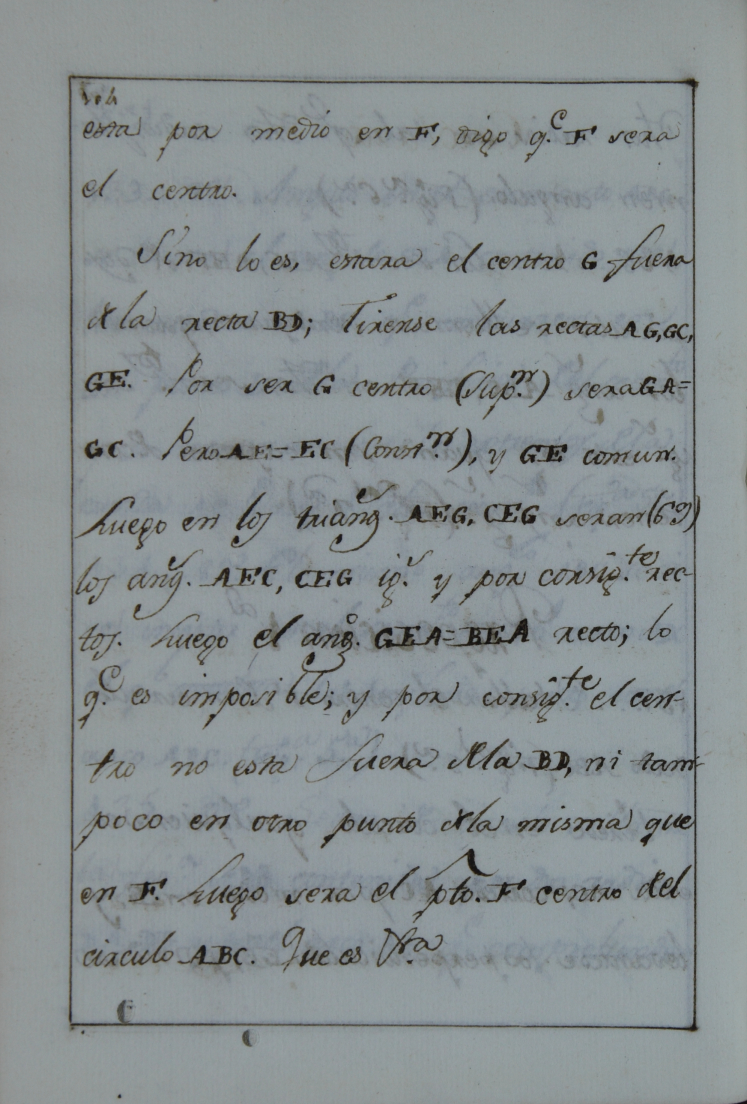 esta por medio en F, digo q.e F sera
el centro.
Sino lo es, estara el centro G fuera
dela recta BD; Tirense las rectas AG, GC,
GE. Por ser G centro (Sup.n) sera GA=
GC. Pero AE=EC (Const.n), y GE comun.
Luego en los triang.s AEG, CEG seran (69)
los ang.s AEG, CEG ig.s y por consig.te rec-
tos. Luego el ang.o GEA=BEA recto; lo
q.e es imposible; y por consig.te el cen-
tro no esta fuera dela BD, ni tam-
poco en otro punto dela misma que
en F. Luego sera el pto. F centro del
circulo ABC. Que es